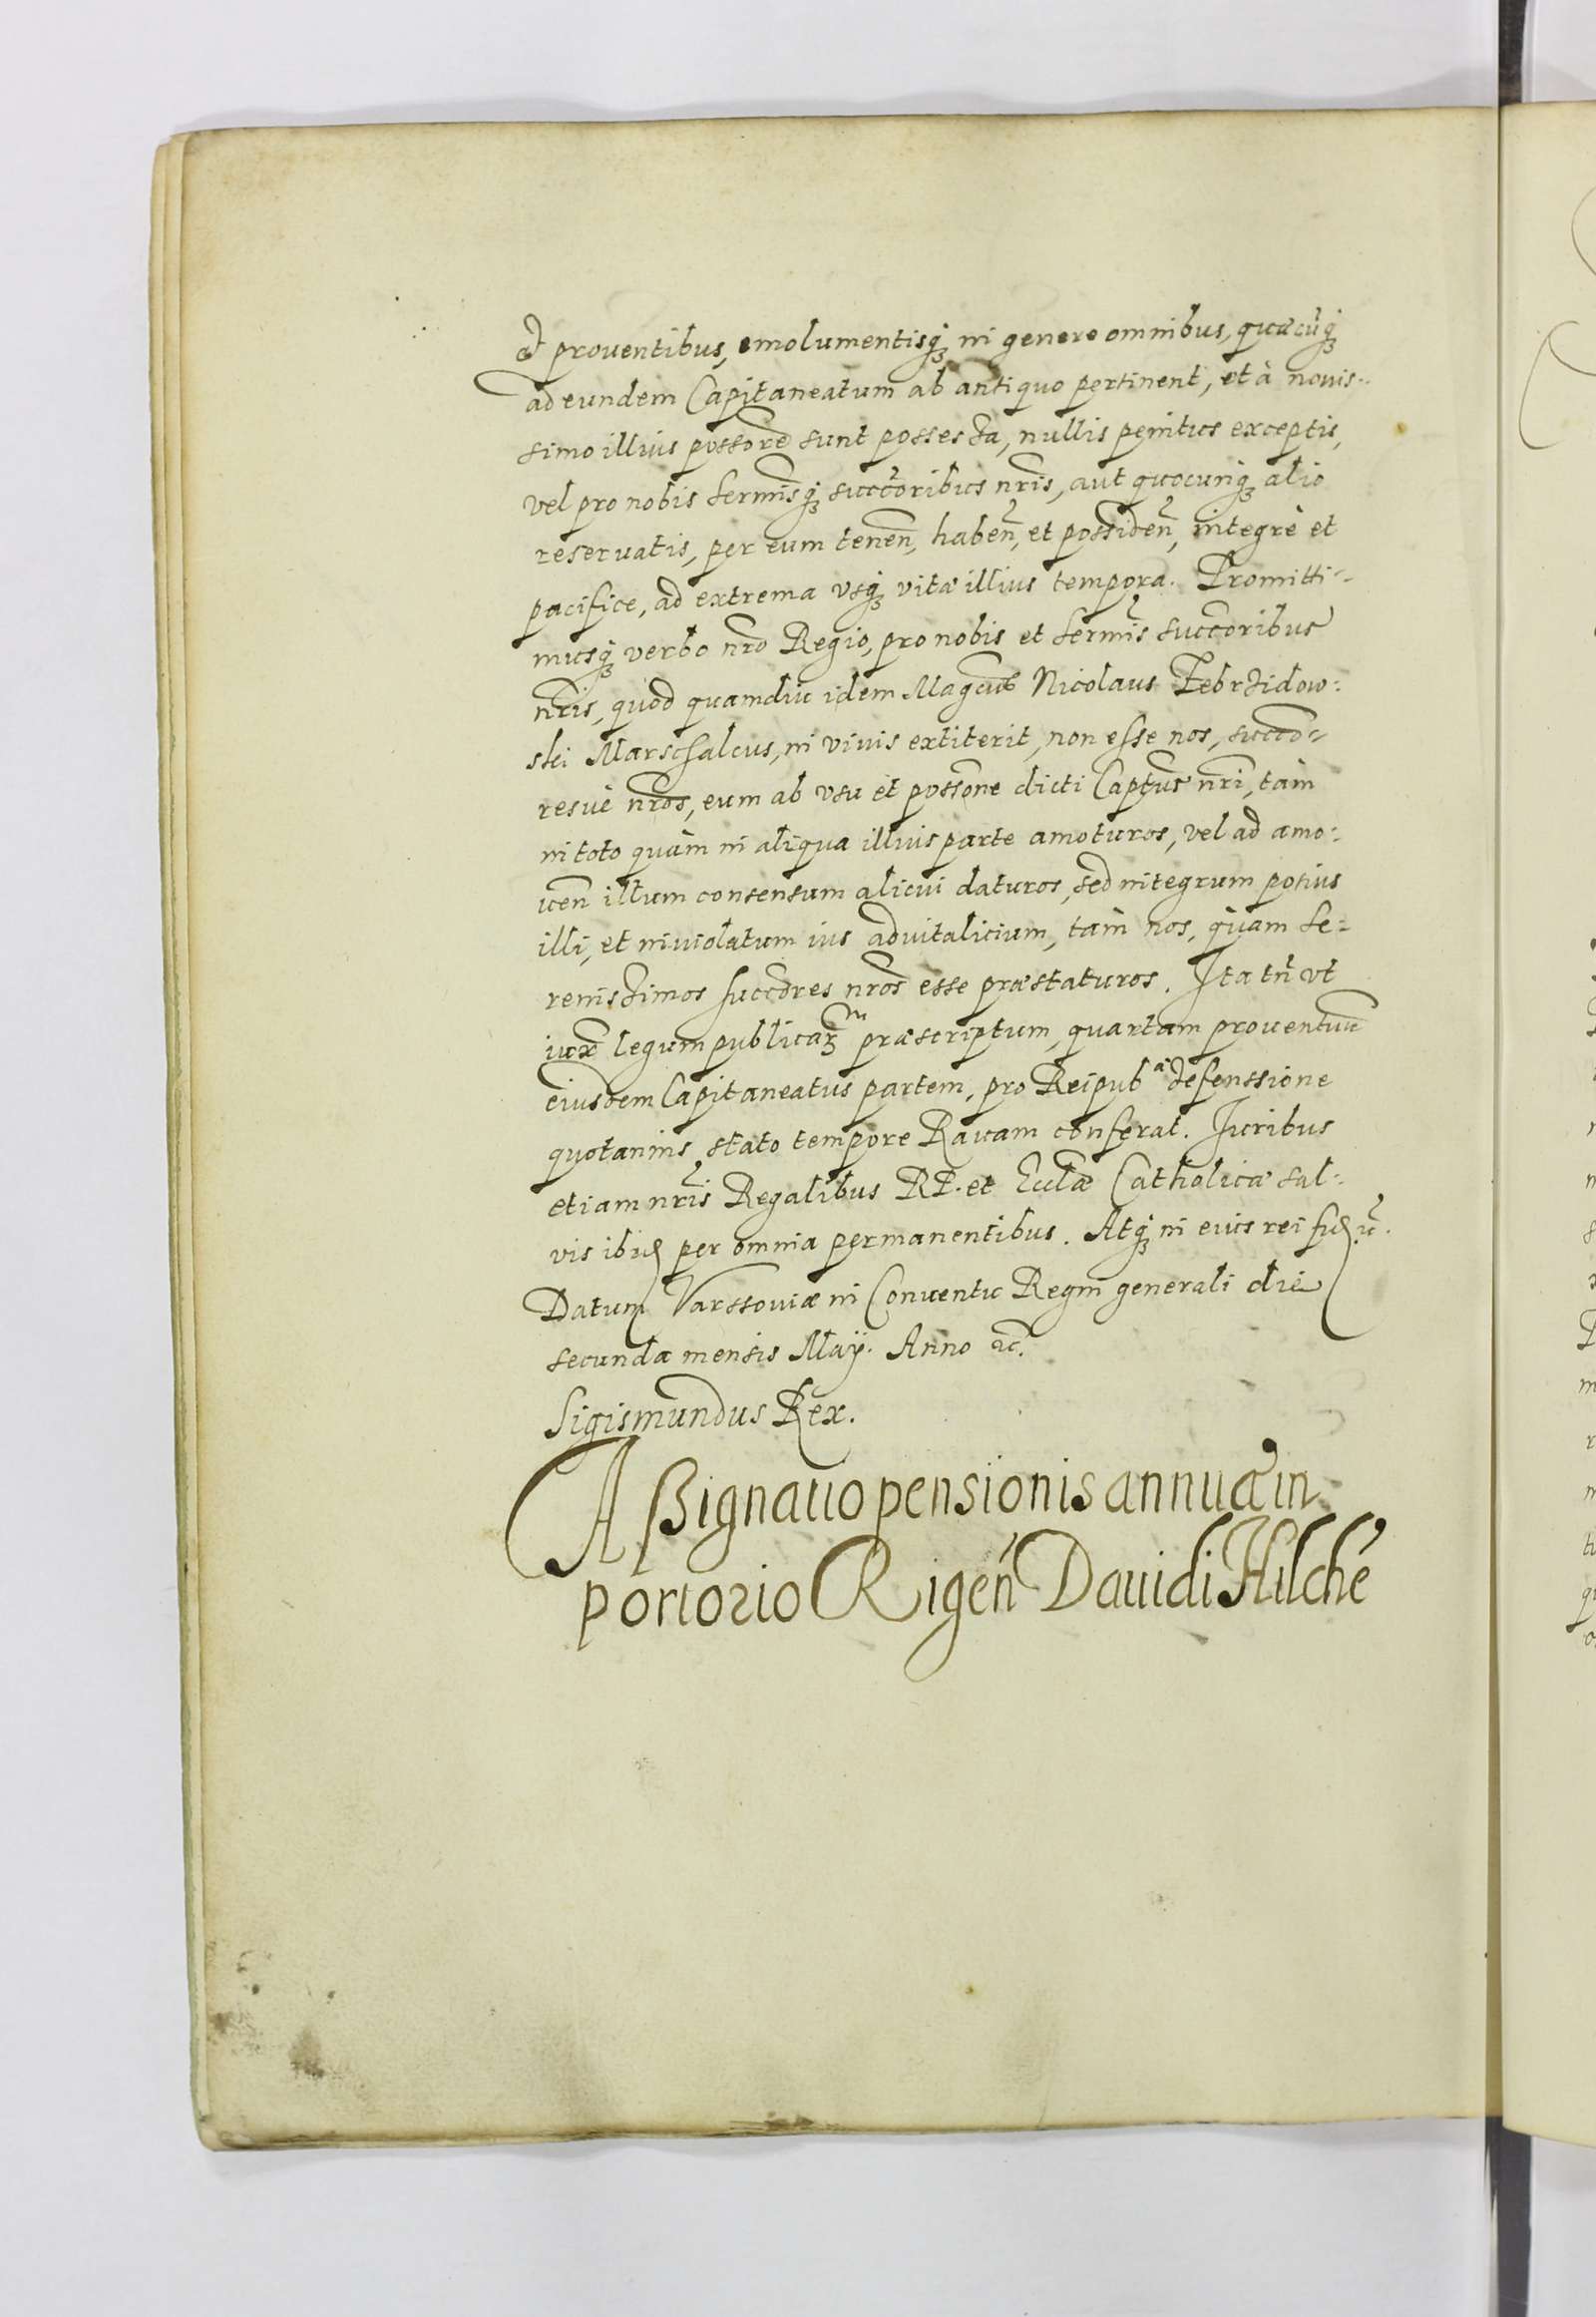 et prouentibus, emolumentisq́ʒ in genere omnibus, quæcūq́ʒ
ad eundem Capitaneatum ab antiquo pertinent, et à nouis-
simo illius possore sunt possessa, nullis penitus exceptis,
vel pro nobis sermisq́ʒ succoribus nris, aut quocunq́ʒ alio
reseruatis, per eum tenen, haben, et possiden, integrè et
pacifice, ad extrema vsq́ʒ vitæ illius tempora. Promitti-
musq́ʒ verbo nro Regio, pro nobis et sermis succoribus
nris, quod quamdiu idem Magcus Nicolaus Zebrzidow:
ski Marschalcus, in viuis extiterit, non esse nos, succo-
resuè nros, eum ab vsu et possone dicti Captus nri, tam
in toto quàm in aliqua illius parte amoturos, vel ad amo:
uen illum consensum alicui daturos, sed integrum potius
illi, et inuiolatum ius aduitalicium, tam nos, quam se:
renissimos succores nros esse præstaturos. Ita tn̄ vt
iuxa legum publicaʒ præscriptum, quartam prouentuum
eiusdem Capitaneatus partem, pro Reipubᵃ defenssione
quotannis stato tempore Rauam conferat. Iuribus
etiam nris Regalibus RP. et Eccla Catholicæ sal:
vis ibidē per omnia permanentibus. Atq́ʒ in eius rei fidē. ꝛc.
Datum Varssouiæ in Conuentu Regni generali die
secunda mensis Maÿ. Anno ꝛc.
Sigismundus Rex.
Assignatio pensionis annuæ in
portorio Rigen Dauidi Hilchē